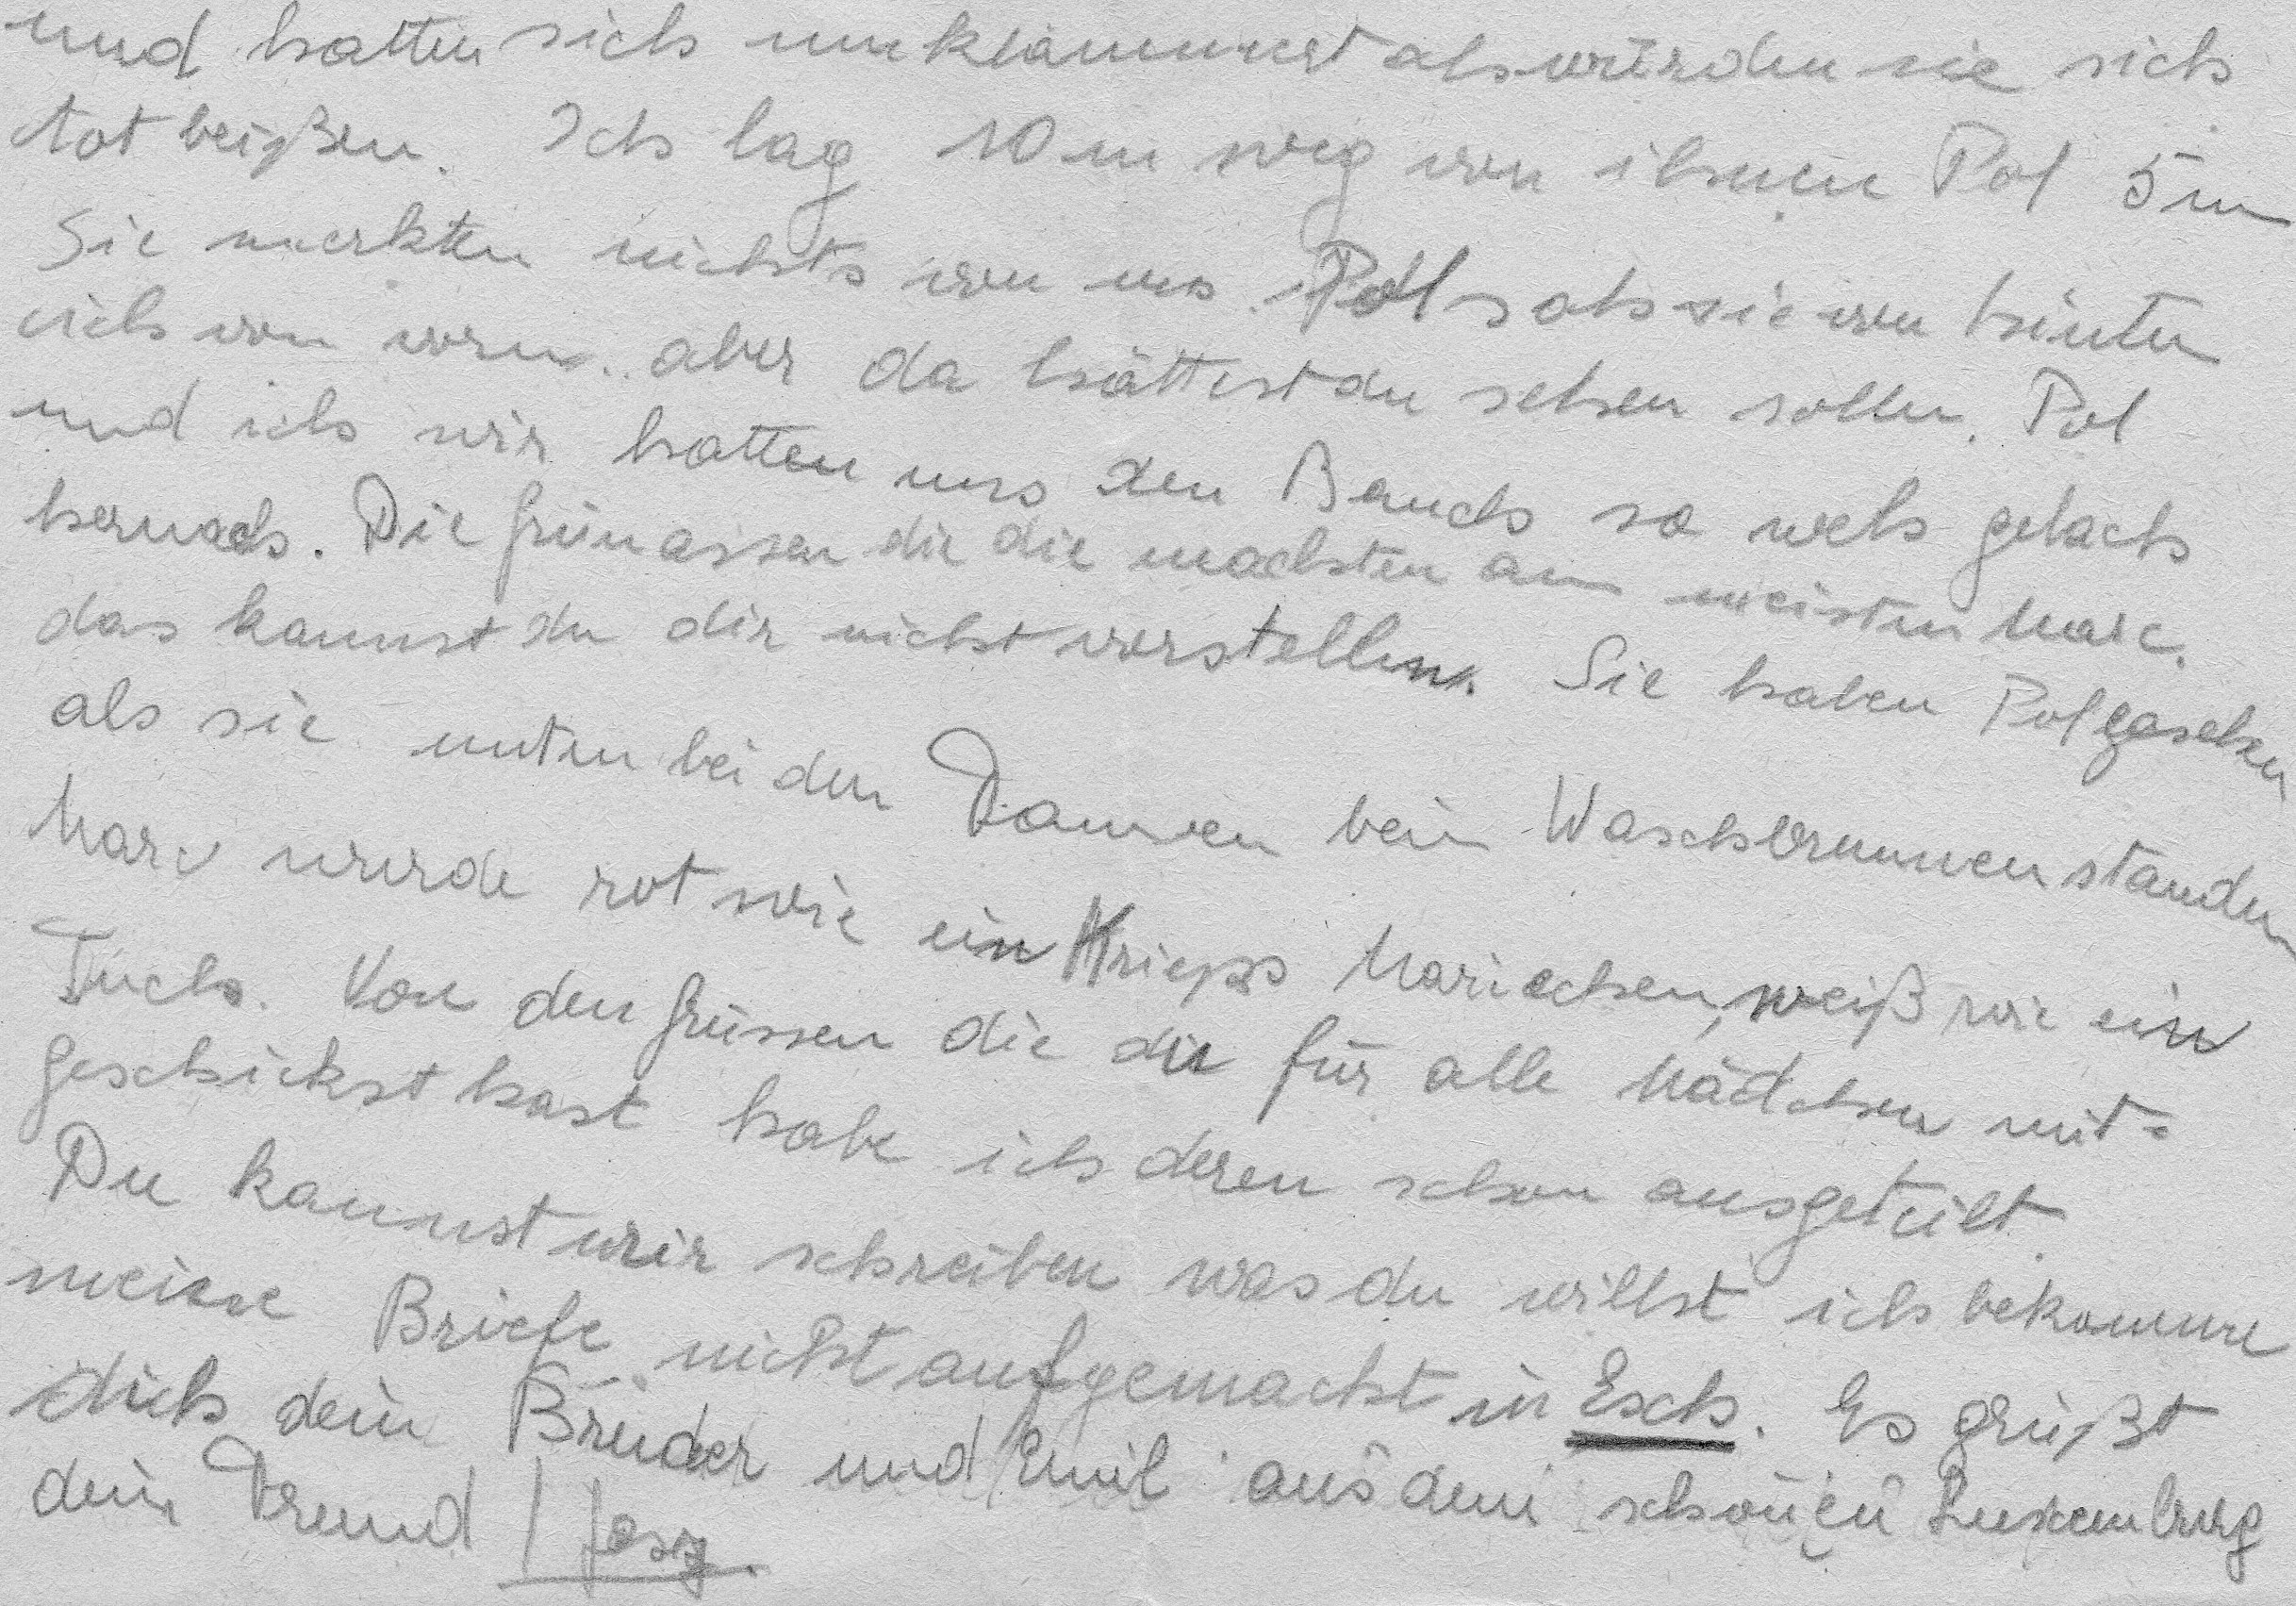 und hatten sich umklammert als würden sie sich
tot beißen. Ich lag 10 m weg von ihnen Pol 5 m
Sie merkten nichts von uns. Pol sah sie von hinten
ich von vorn. aber da hättest du sehen sollen. Pol
und ich wir hatten uns den Bauch so weh gelach
hernach. Die Grimassen die die machten am meisten Marc.
das kannst du dir nicht vorstellen. Sie haben Pol gesehen
als sie unten bei den Dannen beim Waschbrunnen standen
Marc wurde rot wie ein Krieps Mariechen, weiß wie ein
Tuch. Von den Grüssen die du für alle Mädchen mit-
geschickst hast habe ich deren schon ausgeteilt.
Du kannst mir schreiben was du willst ich bekomme
meine Briefe nicht aufgemacht in Esch. Es grüßt
dich dein Bruder und Emil aus dem schönen Luxemburg
dein Freund